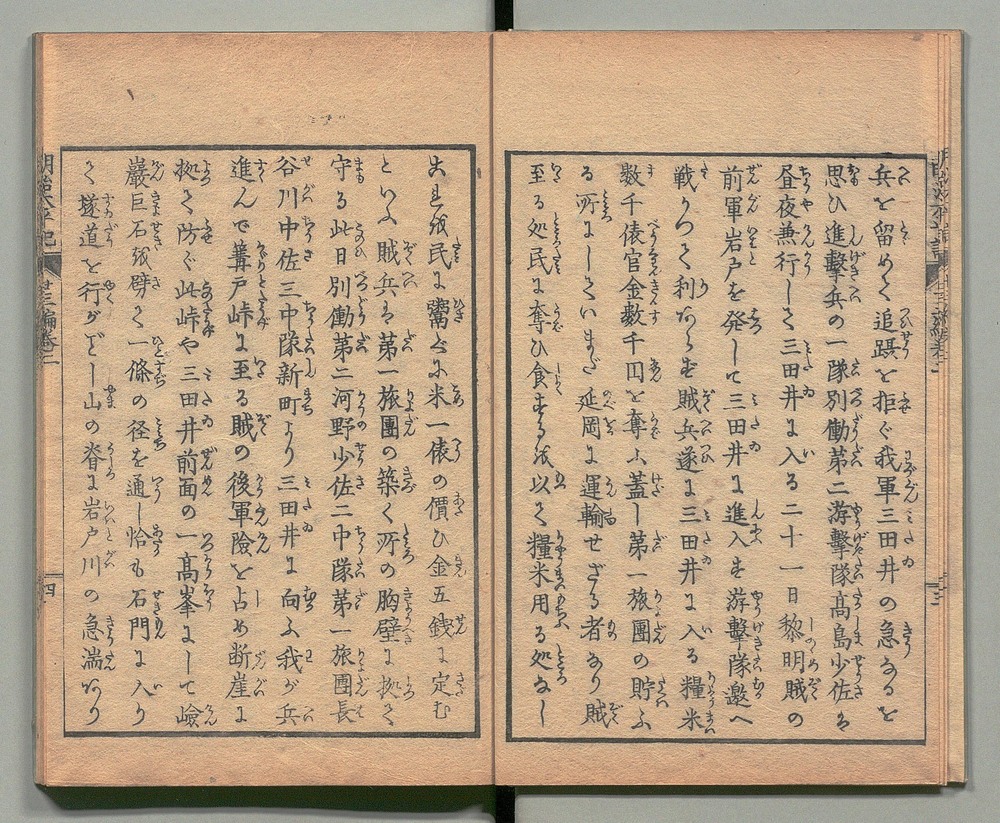 兵を留めて追躡を拒ぐ我軍三田井の急なるを
思ひ進撃兵の一隊別働第二游撃隊高島少佐は
昼夜兼行して三田井に入る二十一日黎明賊の
前軍岩戸を発して三田井に進入す游撃隊邀へ
戦かつて利あらず賊兵遂に三田井に入る糧米
数千俵官金数千円を奪ふ蓋し第一旅團の貯ふ
る所にしていまだ延岡に運輸せざる者なり賊
至る処民に奪ひ食するを以て糧米用る処なし
よりを民に鬻ぐに米一俵の價ひ金五銭に定む
といふ賊兵は第一旅團の築く所の胸壁に拠て
守る此日別働第二河野少佐二中隊第一旅團長
谷川中佐三中隊新町より三田井に向ふ我が兵
進んで篝戸峠に至る賊の後軍險を占め断崖に
拠て防ぐ此峠や三田井前面の一高峯にして嶮
巖巨石を劈て一條の径を通し恰も石門に入り
て隧道を行がごとし山の脊に岩戸川の急湍あり
明治太平記
廿三編巻二
四